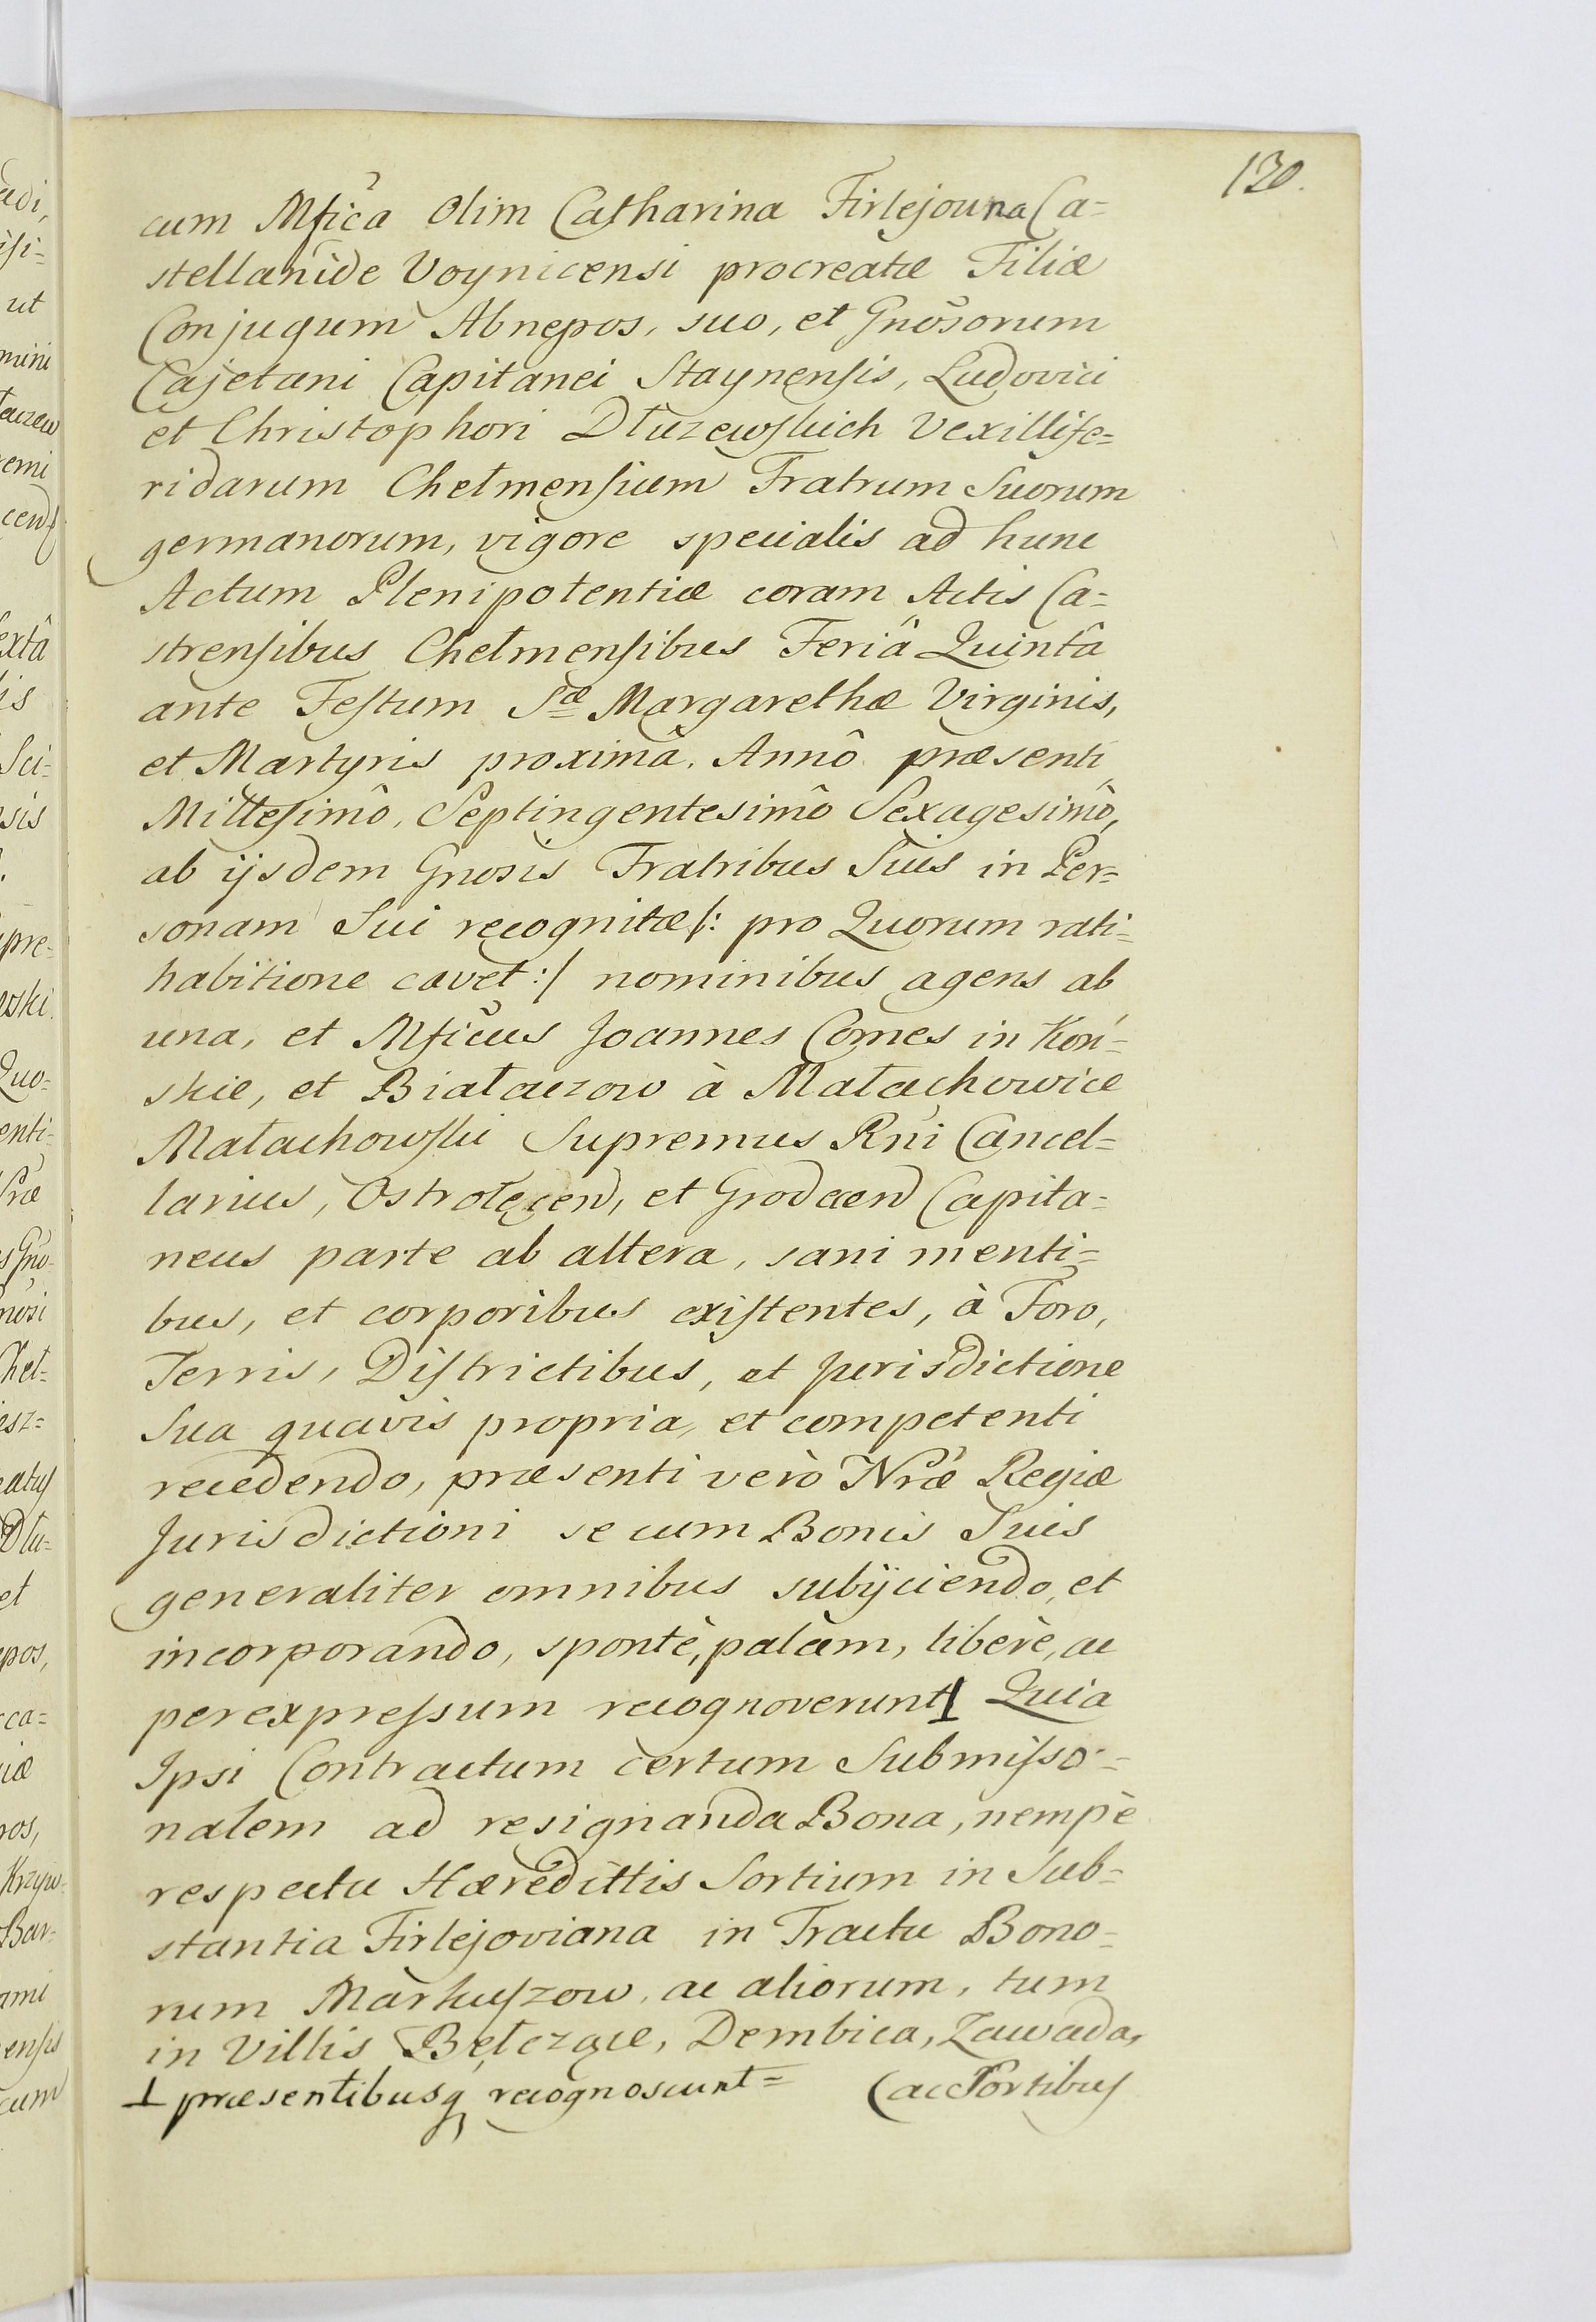 130.
cum Mfica Olim Catharina Firlejouna Ca=
stellanide Voynicensi procreatæ Filiæ
Conjugum Abnepos, suo, et Gnosorum
Cajetani Capitanei Staynensis, Ludovici
et Christophori Dłuzewskich Vexillife=
ridarum Chełmensium Fratrum Suorum
germanorum, vigore specialis ad hunc
Actum Plenipotentiæ coram Actis Ca=
strensibus Chełmensibus Feriâ Quintâ
ante Festum Sæ Margarethæ Virginis,
et Martyris proximâ, Annô præsenti
Millesimô, Septingentesimô Sexagesimô,
ab ijsdem Gnosis Fratribus Suis in Per=
sonam Sui recognitæ/: pro Quorum rati=
habitione cavet:/ nominibus agens ab
una, et Mficus Joannes Comes in Koń=
skie, et Białaczow à Małachowice
Małachowski Supremus Rni Cancel=
larius, Ostrołęcen, et Grodecen Capita=
neus parte ab altera, sani menti=
bus, et corporibus existentes, à Foro,
Terris, Districtibus, et Jurisdictione
Sua quavis propria, et competenti
recedendo, præsenti verò Nræ Regiæ
Jurisdictioni se cum Bonis Suis
generaliter omnibus subijciendo, et
incorporando, spontè, palàm, liberè, ac
perexpressum recognoverunt ⊥ Quia
Ipsi Contractum certum Submisso=
nalem ad resignanda Bona, nempè
respectu Hæredittis Sortium in Sub=
stantia Firlejoviana in Tractu Bono=
rum Markuszow, ac aliorum, tum
in Villis Bełczące, Dembica, Zawada,
⊥ præsentibusq recognoscunt= (ac Sortibus